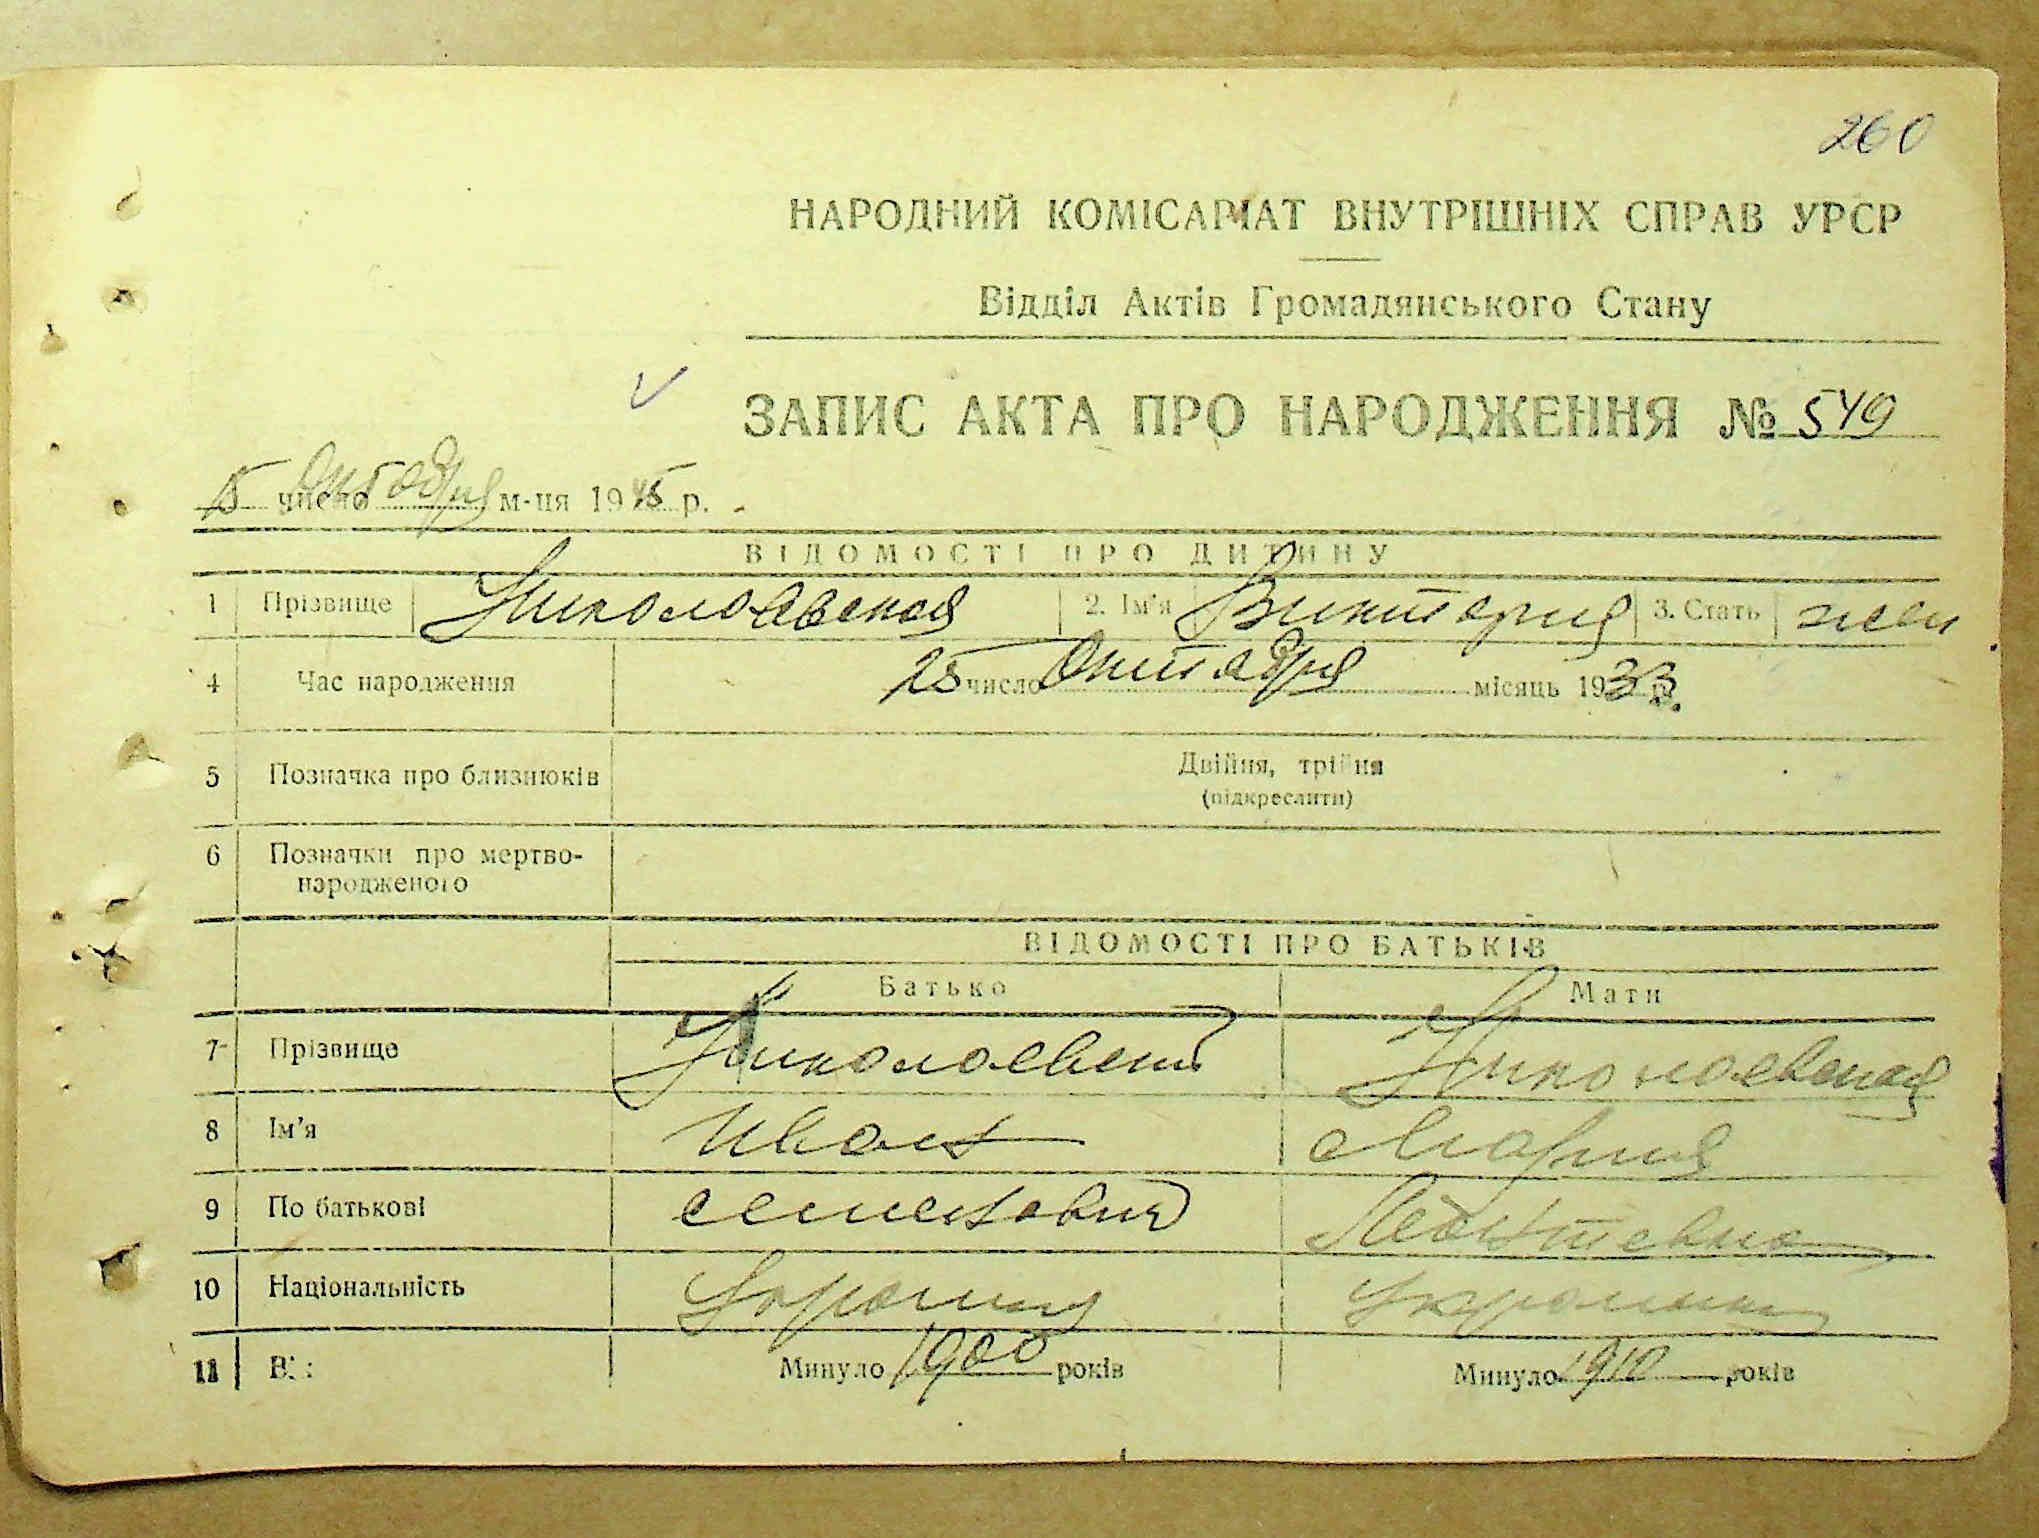 260
НАРОДНИЙ КОМІСАРІАТ ВНУТРІШНІХ СПРАВ УРСР
Відділ Актів Громадянського Стану
ЗАПИС АКТА ПРО НАРОДЖЕННЯ № 549
15 число октября м-ця 1945 р.
ВІДОМОСТІ ПРО ДИТИНУ
1 Прізвище Николаевская 2. Ім'я Виктория 3. Стать жен
4 Час народження 25 число Октября місяць 1933 р.
5 Позначка про близнюків Двійня, трійня
(підкреслити)
6 Позначки про мертво-
народженого
ВІДОМОСТІ ПРО БАТЬКІВ
Батько Мати
7 Прізвище Николаевский Николаевская
8 Ім'я Иван Мария
9 По батькові Семенович Леонтевна
10 Національність Украинец Украинка
11 Вік Минуло 1900 років Минуло 1910 років